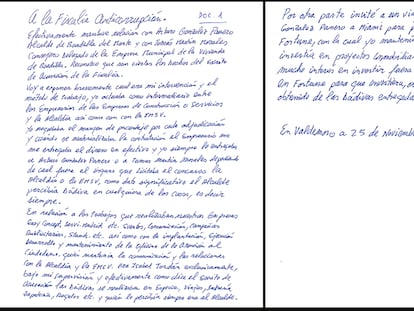 A la Fiscalía Anticorrupción.
DOC. 1
Efectivamente mantuve relación con Arturo González Panero
Alcalde de Boadilla del Monte y con Tomás Martín Morales
Consejero delegado de la Empresa Municipal de la Vivienda
de Boadilla. Reconozco que son ciertos los hechos del escrito
de acusación de la Fiscalía.
Voy a exponer brevemente cual era mi intervención y el
método de trabajo, yo actuaba como intermediario entre
los Empresarios de las Empresas de Construcción o Servicios
y la Alcaldía así como con la EMSV.
Yo negociaba el margen de porcentaje por cada adjudicación
y cuando se materializaba la contratación el Empresario me
me entregaba el dinero en efectivo y yo siempre lo entregaba
a Arturo González Panero o a Tomás Martín Morales dependiendo
de cual fuera el órgano que licitaba el concurso la
Alcaldía o la EMSV, como dato significativo el Alcalde
percibía Dádiva en cualquiera de los casos, es decir
siempre.
En relación a los trabajos que realizaban nuestras Empresas
Easy Concept, Servimadrid etc. Eventos, Comunicación, Campañas
Publicitarias, Stands, etc. así como con la implantación, Ejecución
Desarrollo y mantenimiento de la oficina de la Atención al
Ciudadano, quien mantenía la comunicación y las relaciones
con la Alcaldía y la EMSV. era Isabel Jordán exclusivamente,
bajo mi supervisión y efectivamente como dice el Escrito de
Acusación las Dádivas se realizaban en Especie, Viajes,
Zapatería, Regalos etc. y quien lo percibía siempre era el Alcalde.
Por otra parte invité a un viaj
González Panero a Miami para p
Fortune, con la cual yo mantenía
invertía en proyectos inmobiliar
mucho interés en invertir fuera
en Fortune para que invirtiera, d
obtenido de las dádivas entregada
En Valdemoro a 25 de noviemb